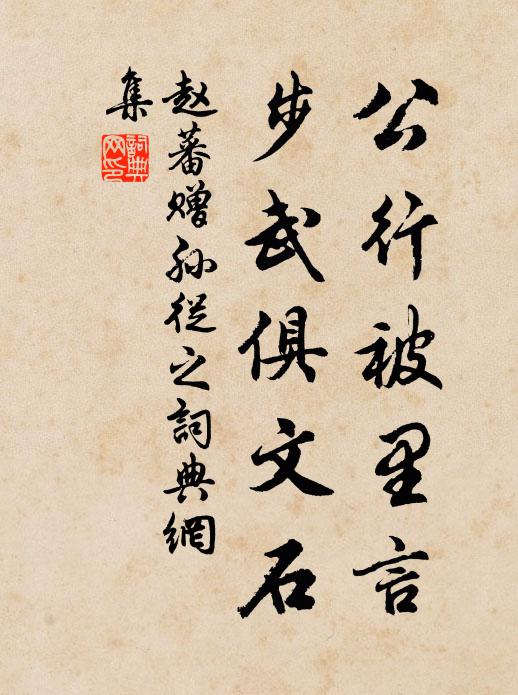 公行被里言
步武俱文石
赵蕃赠孙從之詞典網
集
詞典網印